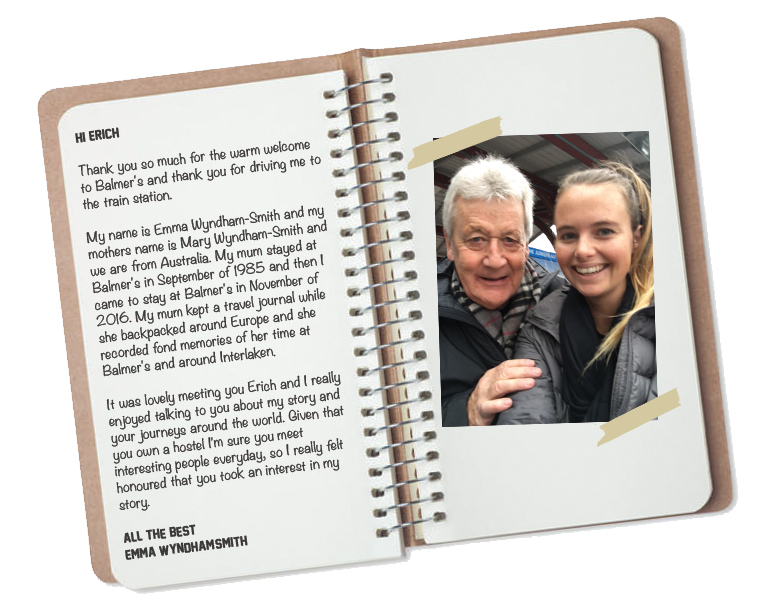 HI ERICH
Thank you so much for the warm welcome
to Balmer's and thank you for driving me to
the train station.
My name is Emma Wyndham-Smith and my
mothers name is Mary Wyndham-Smith and
we are from Australia. My mum stayed at
Balmer's in September of 1985 and then I
came to stay at Balmer's in November of
2016. My mum kept a travel journal while
she backpacked around Europe and she
recorded fond memories of her time at
Balmer's and around Interlaken.
It was lovely meeting you Erich and I really
enjoyed talking to you about my story and
your journeys around the world. Given that
you own a hostel I'm sure you meet
interesting people everyday, so I really felt
honoured that you took an interest in my
story.
ALL THE BEST
EMMA WYNDHAMSMITH